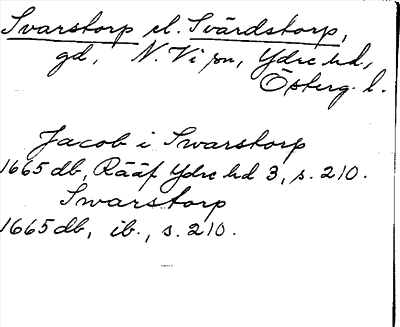 Svarstorp el. Svärdstorp,
gd, N. Vi sn, Ydre hd,
Österg. l.
Jacob i Swarstorp
1665 db, Rääf Ydre hd 3, s. 210.
Swarstorp
1665 db, ib., s. 210.